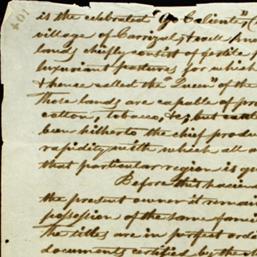 is the celebrated "Ojo Caliente" (
village of Carrizal, & well kno
lands chiefly consist of fertile p
luxuriant pastures for which
& hence called the "Queen" of the
these lands are capable of pro
cotton, tobacco, &c; but cattle
been hitherto the chief produc
rapidity with which all a
that particular region is qu
Before this hacienda
the present owner it remain
possession of the same famil
the titles are in perfect orde
documents certified by the